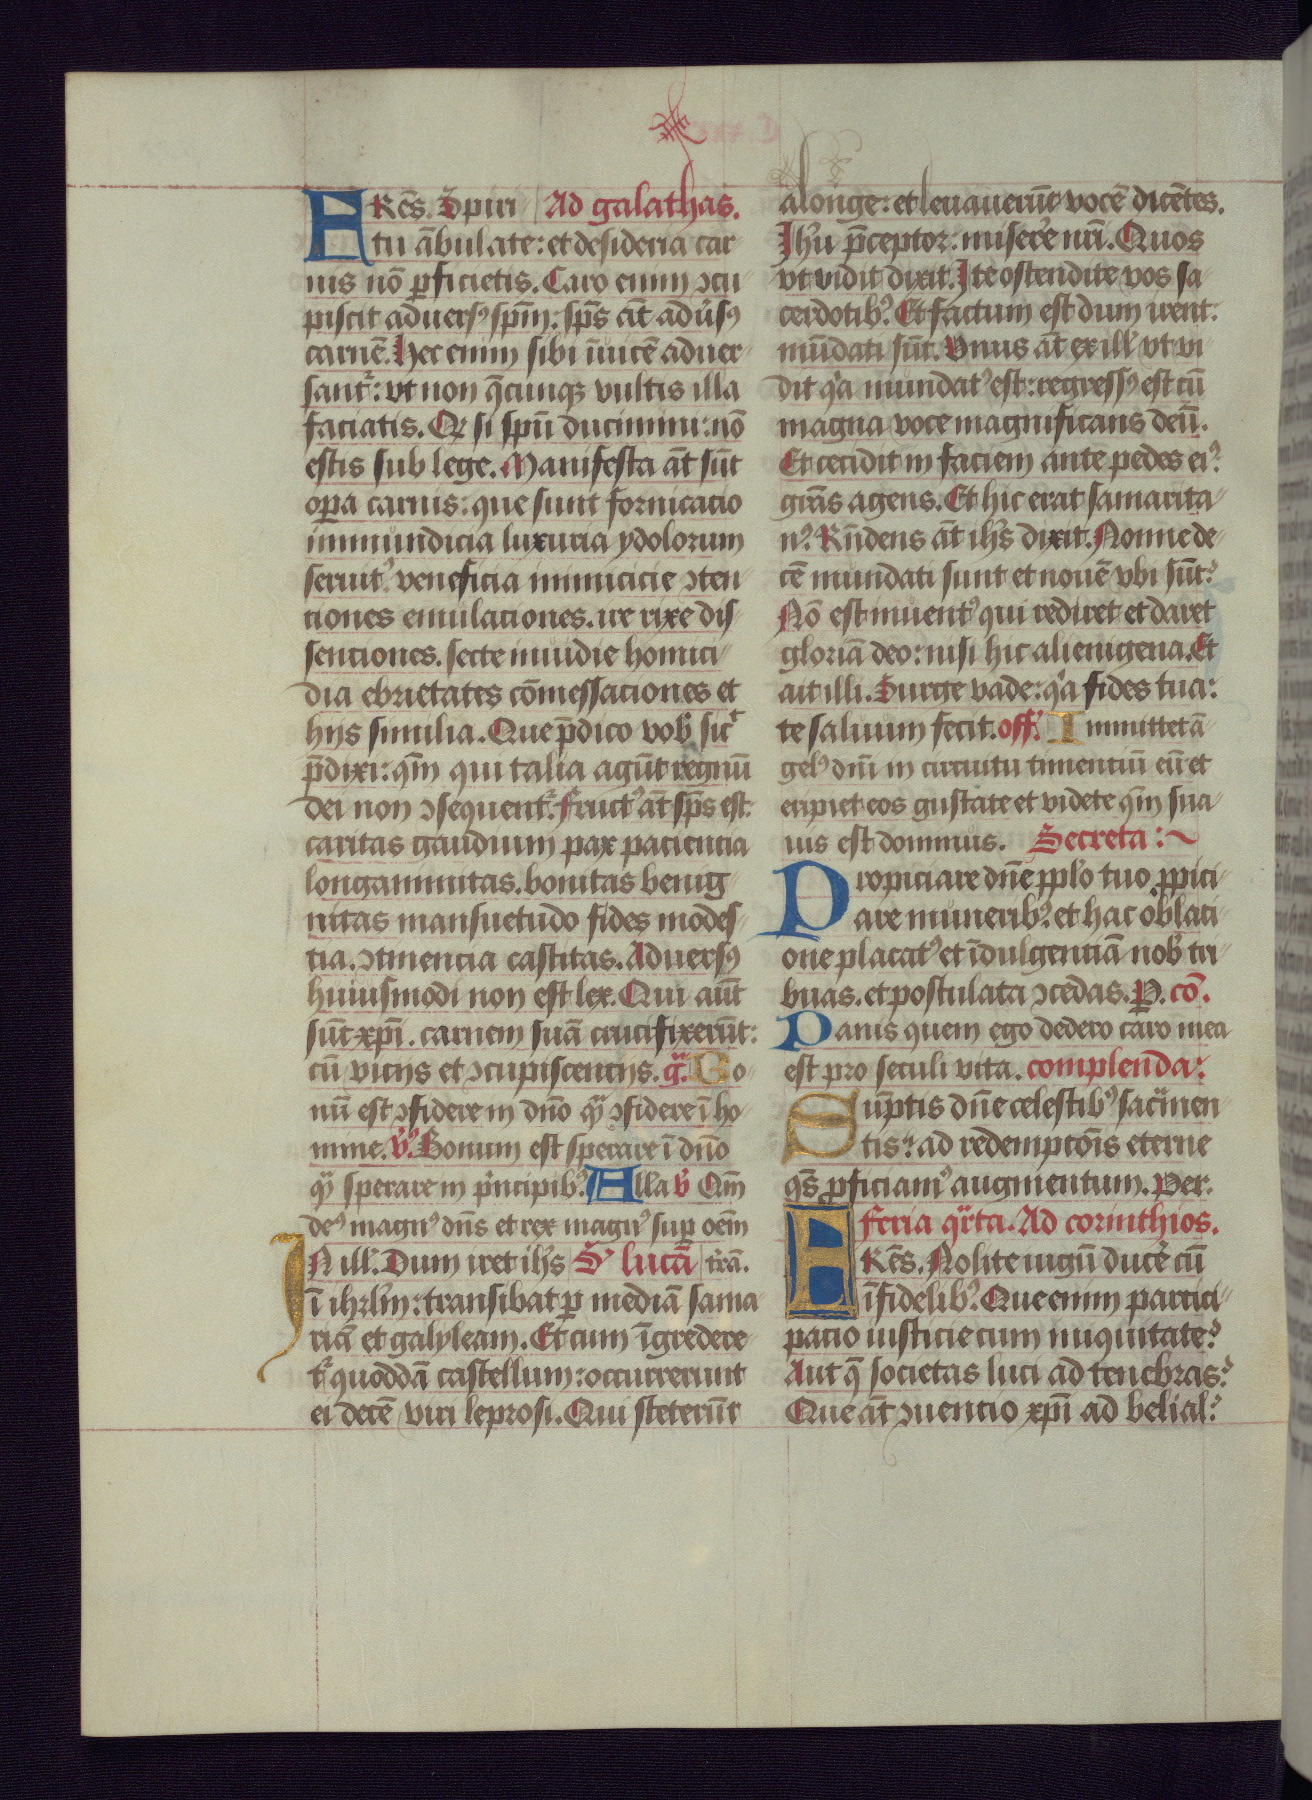 FRēs. Spiri Ad galathas.
tu ābulate: et desideria car
nis nō ꝑficietis. Caro enim ꝯcu
piscit aduersꝰ spm̄: sps̄ āt adūsꝰ
carnē. Hec enim sibi īuicē aduer
santᷣ: vt non q̄cunqꝫ vultis illa
faciatis. Qꝛ si spū ducimini: nō
estis sub lege. Manifesta āt sūt
oꝑa carnis: que sunt fornicacio
inmundicia luxuria ydolorum
seruitꝰ veneficia inimicicie ꝯten
tiones emulaciones. ire rixe dis
senciones. secte inuidie homici
dia ebrietates cōmessaciones et
hijs similia. Que p̄dico vob̄ sicᷣ
p̄dixi: qm̄ qui talia agūt regnū
dei non ꝯsequentᷣ. Fructꝰ āt sps̄ est
caritas gaudium pax paciencia
longanimitas. bonitas benig
nitas mansuetudo fides modes
tia. ꝯtinencia castitas. Aduersꝰ
huiusmodi non est lex. Qui aūt
sūt xpī. carnem suā crucifixerūt:
cū vicijs et ꝯcupiscencijs. gͣ. Bo
nū est ꝯfidere in dn̄o qͣꝫ ꝯfidere ī ho
mine. v̄. Bonum est sperare ī dn̄o
qͣꝫ sperare in pͥncipibꝰ. Alla v̄ Qm̄
deꝰ magnꝰ dn̄s et rex magnꝰ suꝑ oēm
IN ill̄. Dum iret ihs̄ S᷑ lucā trā.
ī ihrl̄m: transibat ꝑ mediā sama
riā et galyleam. Et cum īgredere
tᷣ quoddā castellum: occurrerunt
ei decē viri leprosi. Qui steterūt
alonge: et leuauerūt vocē dicētes.
Ihū p̄ceptor: miserē nrī. Quos
vt vidit dixit. Ite ostendite vos sa
cerdotibꝰ. Et factum est dum irent:
mūdati sūt. Vnus āt ex ill̄ vt vi
dit qͥa mundatꝰ est: regressꝰ est cū
magna voce magnificans deū.
Et cecidit in faciem ante pedes eiꝰ
grās agens. Et hic erat samarita
nꝰ. Rn̄dens āt ihs̄ dixit. Nonne de
cē mundati sunt et nouē vbi sūt?
Nō est inuentꝰ qui rediret et daret
gloriā deo: nisi hic alienigena. Et
ait illi. Surge vade: qͥa fides tua:
te saluum fecit. off᷑. Inmittet ā
gelꝰ dn̄i in circuitu timentiū eū et
eripiet eos gustate et videte qm̄ sua
uis est dominus. Secreta:~
Propiciare dn̄e ppl̄o tuo ꝓpici
are muneribꝰ. et hac oblaci
one placatꝰ et īdulgentiā nob̄ tri
buas. et postulata ꝯcedas. P. cō.
Panis quem ego dedero caro mea
est pro seculi vita. complenda:
Sūptis dn̄e celestibꝰ sacͣmen
tis: ad redemptōis eterne
qs̄ ꝓficiamꝰ augmentum. Per.
Feria qͣrta. Ad corinthios.
FRēs. Nolite iugū ducē cū
īfidelibꝰ. Que enim partici
patio iusticie cum iniquitate?
Aut q̄ societas luci ad tenebras?
Que āt ꝯuencio xpī ad belial?